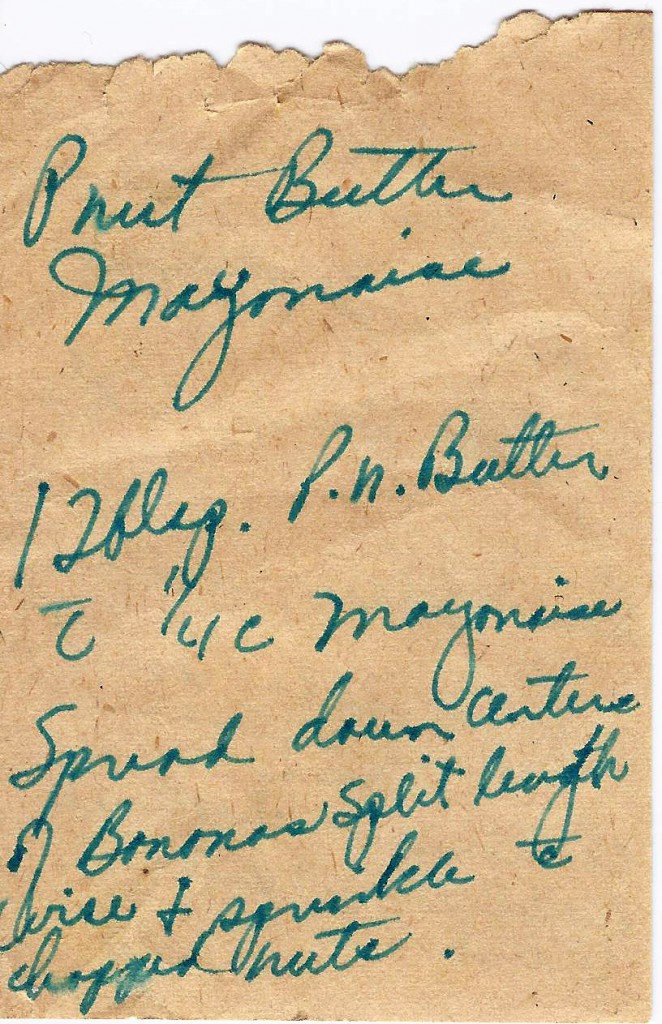 Pnut Butter
Mayonaise
1 Tblsp. P.n. Butter
c̄ 1/4 c Mayonaise
Spread down centers
of Bananas split length
wise + sprinkle c̄
chopped nuts.